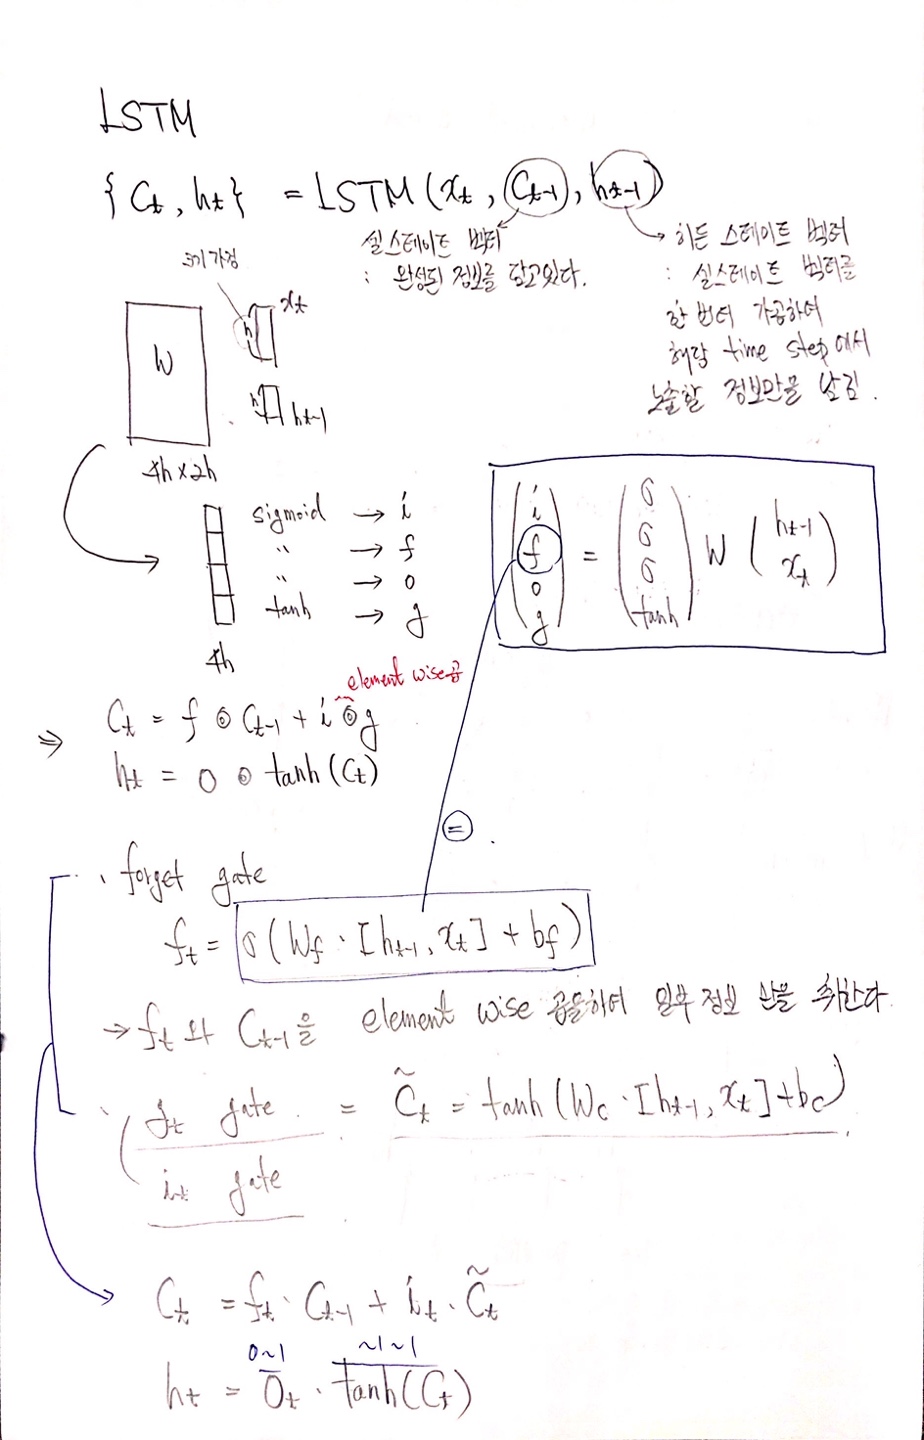 LSTM
{ Ct, ht } = LSTM ( xt, Ct-1, ht-1 )
셀스테이트 벡터
: 완성된 정보를 담고있다.
히든 스테이트 벡터
: 셀스테이트 벡터를
한 번더 가공하여
해당 time step에서
노출할 정보만을 남김.
크기가정
W
h
xt
h
ht-1
4h×2h
sigmoid → i
〃 → f
〃 → o
tanh → g
4h
( i f o g ) = ( σ σ σ tanh ) W ( ht-1 xt )
element wise곱
⇒ Ct = f ⊙ Ct-1 + i ⊙ g
ht = o ⊙ tanh(Ct)
=
· forget gate
ft = σ( Wf · [ht-1, xt] + bf )
→ ft 와 Ct-1을 element wise 곱을하여 일부 정보 만을 취한다
· gt gate = C̃t = tanh (Wc · [ht-1, xt] + bc)
it gate
Ct = ft · Ct-1 + it · C̃t
0~1 ~1~1
ht = Ot · tanh(Ct)